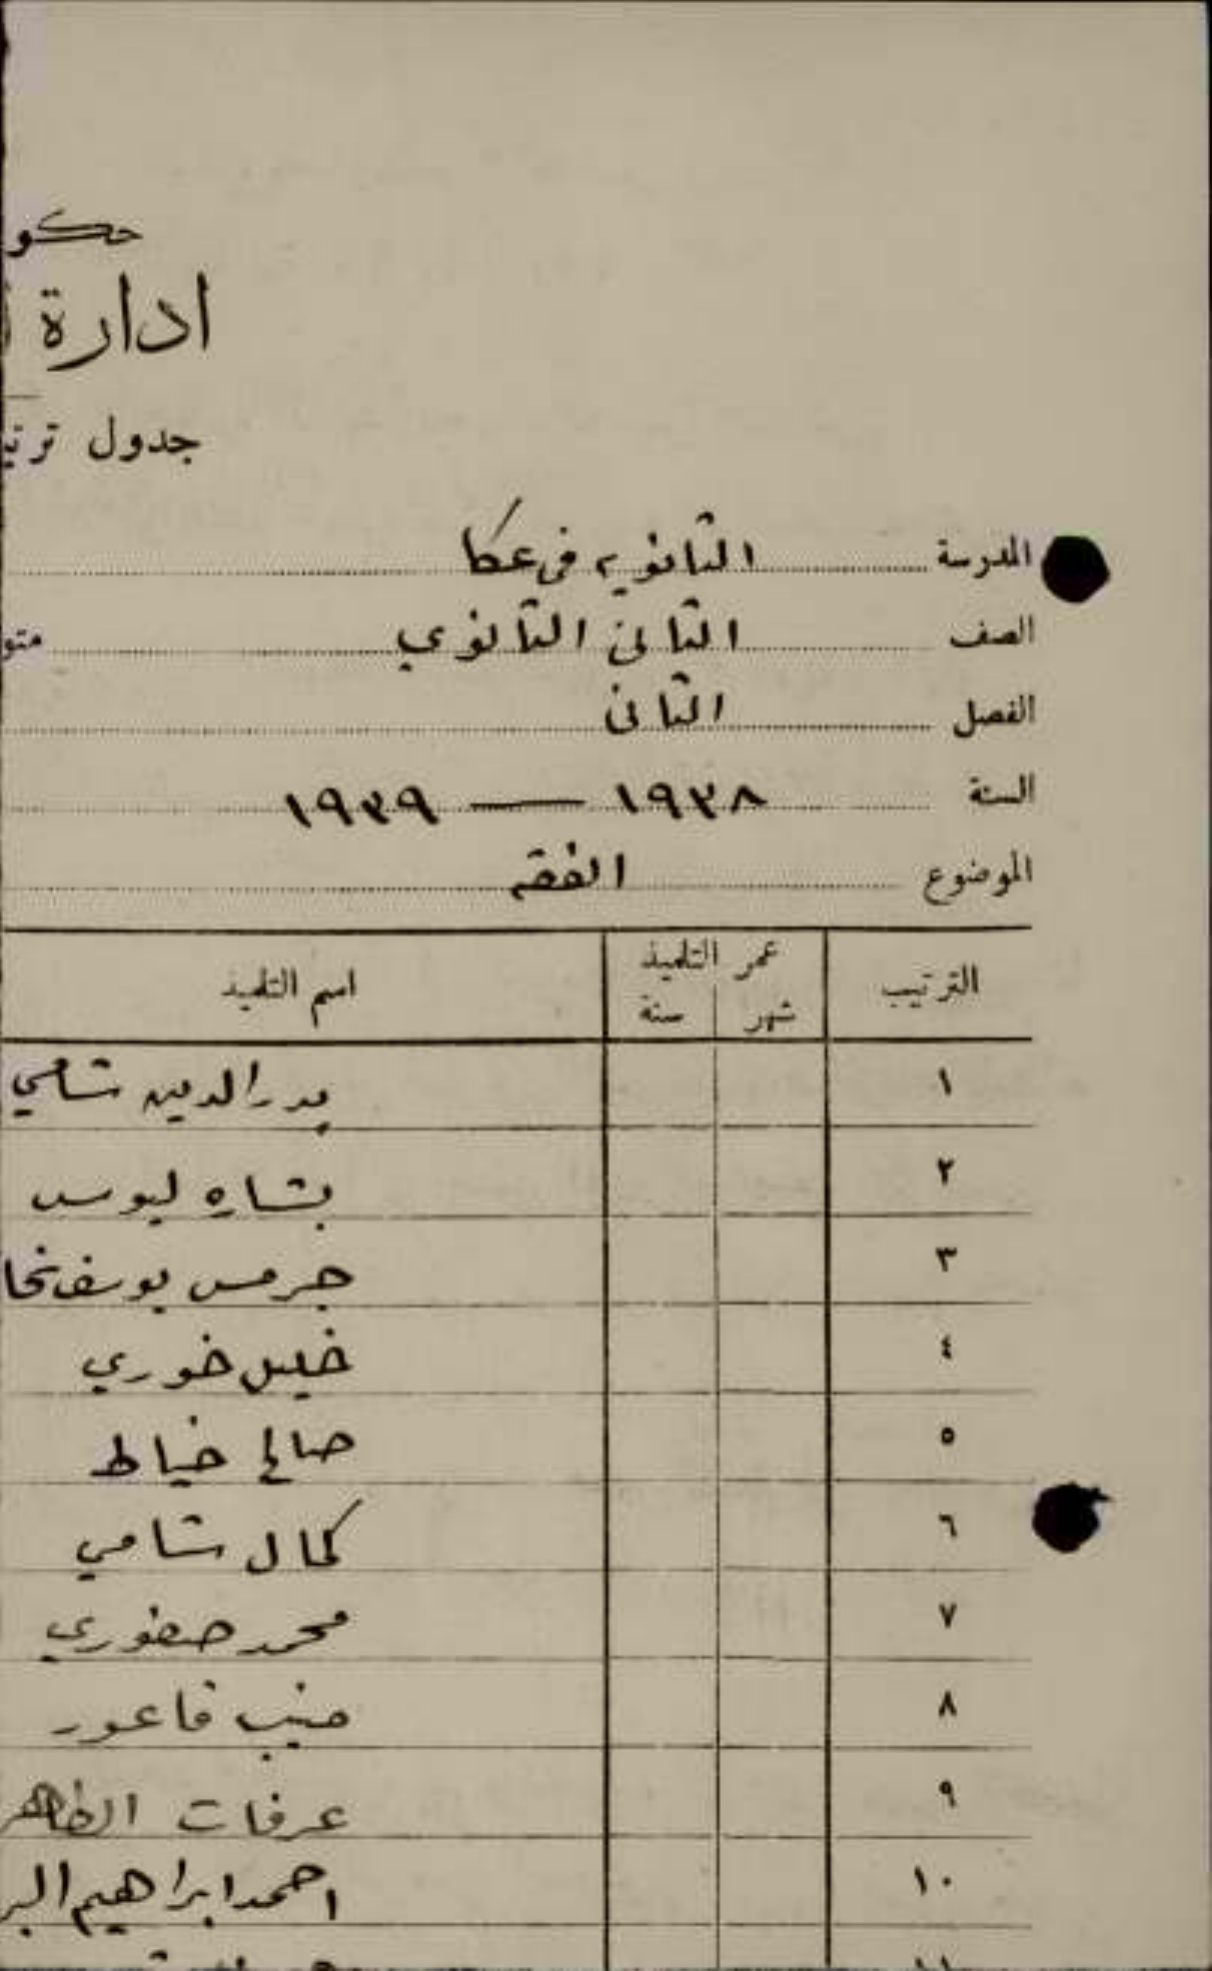 حكو
ادارة
جدول ترتي
المدرسة الثانويه في عكا
الصف الثاني الثانوي متو
الفصل الثاني
السنة ١٩٣٨ — ١٩٣٩
الموضوع الفقه
الترتيب عمر التلميذ اسم التلميذ
شهر سنة
١ بدر الدين شامي
٢ بشاره
٣ جرمس يوسف نحا
٤ خليل خوري
٥ صالح خياط
٦ كمال شامي
٧ محمد صفوري
٨ منيب قاعور
٩ عرفات الطاهر
١٠ احمد ابراهيم البر
١١